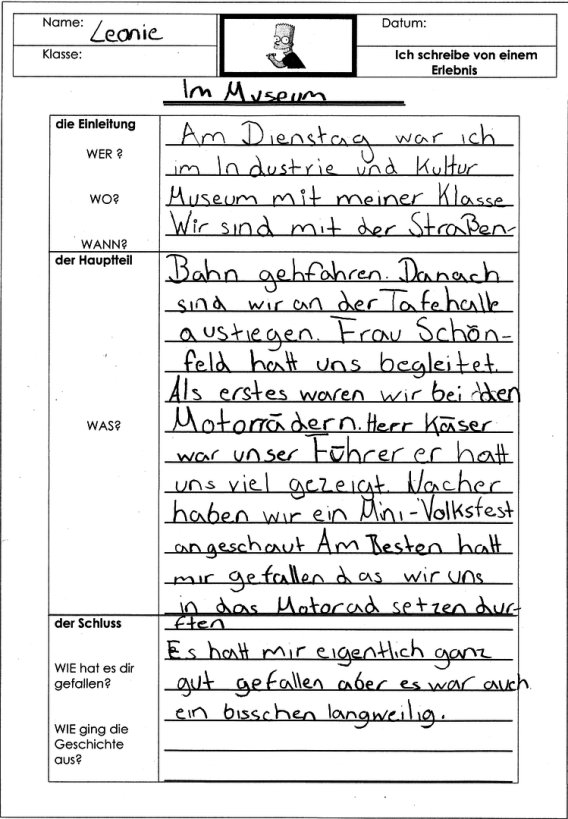 Name: Leonie
Datum:
Klasse:
Ich schreibe von einem
Erlebnis
Im Museum
die Einleitung
WER ?
WO?
WANN?
Am Dienstag war ich
im Industrie und Kultur
Museum mit meiner Klasse
Wir sind mit der Straßen-
der Hauptteil
WAS?
Bahn gehfahren. Danach
sind wir an der Tafehalle
austiegen. Frau Schön-
feld hatt uns begleitet.
Als erstes waren wir bei dden
Motorrädern. Herr Käser
war unser Führer er hatt
uns viel gezeigt. Nacher
haben wir ein Mini-Volksfest
angeschaut Am Besten hatt
mir gefallen das wir uns
in das Motorad setzen dur-
ften
der Schluss
WIE hat es dir
gefallen?
WIE ging die
Geschichte
aus?
Es hatt mir eigentlich ganz
gut gefallen aber es war auch
ein bisschen langweilig.